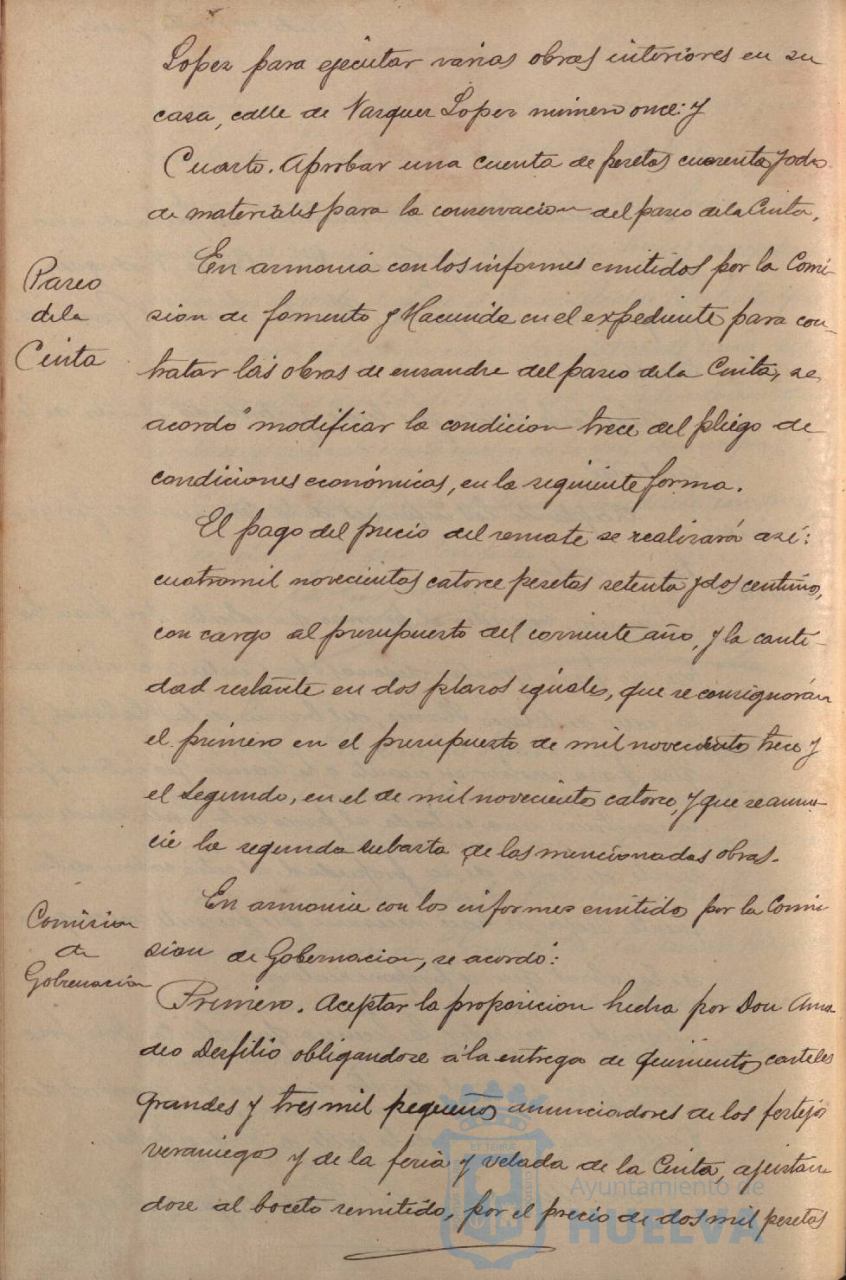 Lopez para ejecutar varias obras interiores en su
casa, calle de Vazquez Lopez número once: y
Cuarto. Aprobar una cuenta de pesetas cuarenta y ocho
de materiales para la conservacion del paseo de la Cinta.
Paseo
de la
Cinta
En armonia con los informes emitidos por la Comi-
sion de fomento y Hacienda en el expediente para con-
tratar las obras de ensanche del paseo de la Cinta, se
acordó modificar la condicion trece del pliego de
condiciones económicas, en la siguiente forma.
El pago del precio del remate se realizará asi:
cuatromil novecientas catorce pesetas setenta y dos centimos,
con cargo al presupuesto del corriente año, y la canti-
dad restante en dos plazos iguales, que se consignarán
el primero en el presupuesto de mil novecientos trece y
el segundo, en el de mil novecientos catorce, y que se anun-
cie la segunda subasta de las mencionadas obras.
Comision
de
Gobernación
En armonia con los informes emitido por la Comi
sion de Gobernacion, se acordó:
Primero. Aceptar la proposicion hecha por Don Ama-
deo Desfilio obligandose á la entrega de quinientos carteles
grandes y tres mil pequeños anunciadores de los festejos
veraniegos y de la feria y velada de la Cinta, ajustan
dose al boceto remitido, por el precio de dos mil pesetas
Ayuntamiento de
HUELVA